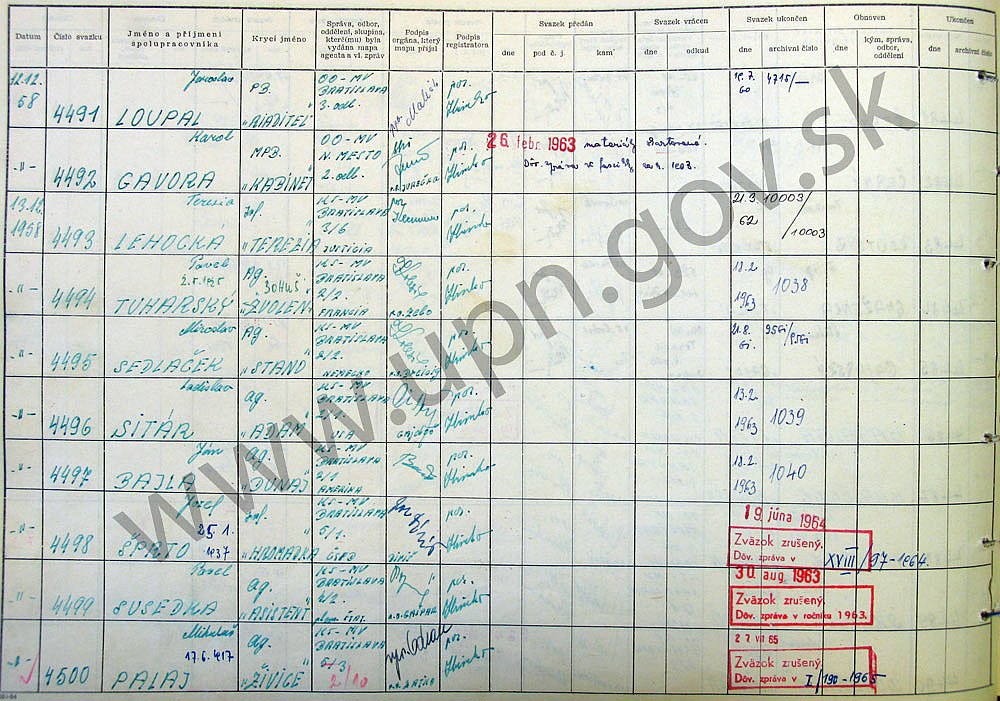 Datum
Číslo svazku
Jméno a příjmení spolupracovníka
Krycí jméno
Správa, odbor, oddělení, skupina, kterě(mu) byla vydána mapa agenta a vl. zpráv
Podpis orgána, který mapu přijal
Podpis registratora
Svazek předán
dne
pod č. j.
kam
Svazek vrácen
dne
odkud
Svazek ukončen
dne
archivní číslo
Obnoven
dne
kým, správa, odbor, oddělení
Ukončen
dne
archivní číslo
12.12. 58
4491
Jaroslav
LOUPAL
PB.
"RIADITEĽ"
OO-MV
BRATISLAVA
3. odb.
por.
Hlinko
4715/—
-"-
4492
Karol
GAVORA
MPB.
"KABINET"
OO-MV
N. MESTO
2. odb.
por.
Hlinko
26. febr. 1963
13.12. 1958
4493
Terezia
LEHOCKÁ
Inf.
"TEREZIA"
KS-MV
BRATISLAVA
3/6
por.
Hlinko
21.3. 62
10003/10003
-"-
4494
Pavel
TUHARSKÝ
Ag.
BOHUŠ
"ZVOLEN"
KS-MV
BRATISLAVA
2/2.
FRANCIA
por.
Hlinko
18.2. 1963
1038
-"-
4495
Miroslav
SEDLAČEK
Ag.
"STANO"
KS-MV
BRATISLAVA
2/2.
NEMECKO
por.
Hlinko
21.8.
-"-
4496
Ladislav
SITÁR
Ag.
"ADAM"
KS-MV
BRATISLAVA
por.
Hlinko
13.2. 1963
1039
-"-
4497
Ján
BAJLA
Ag.
"DUNAJ"
KS-MV
BRATISLAVA
2/1
AMERIKA
por.
Hlinko
18.2. 1963
1040
-"-
4498
Jozef
25.1. 1937
Inf.
"HROMADKA"
KS-MV
BRATISLAVA
5/1.
por.
Hlinko
19. júna 1964
Zväzok zrušený.
Dôv. zpráva v XVIII/97-1964.
-"-
4499
SUSEDKA
Ag.
"ASISTENT"
KS-MV
BRATISLAVA
2/2.
por.
Hlinko
30. aug. 1963
Zväzok zrušený.
Dôv. zpráva v ročníku 1963.
-"-
4500
Mikuláš
17.6.917
PALAJ
Ag.
"ŽIVICE"
KS-MV
BRATISLAVA
2/10
por.
Hlinko
27 VII 65
Zväzok zrušený.
Dôv. zpráva v I/190-1965
www.upn.gov.sk